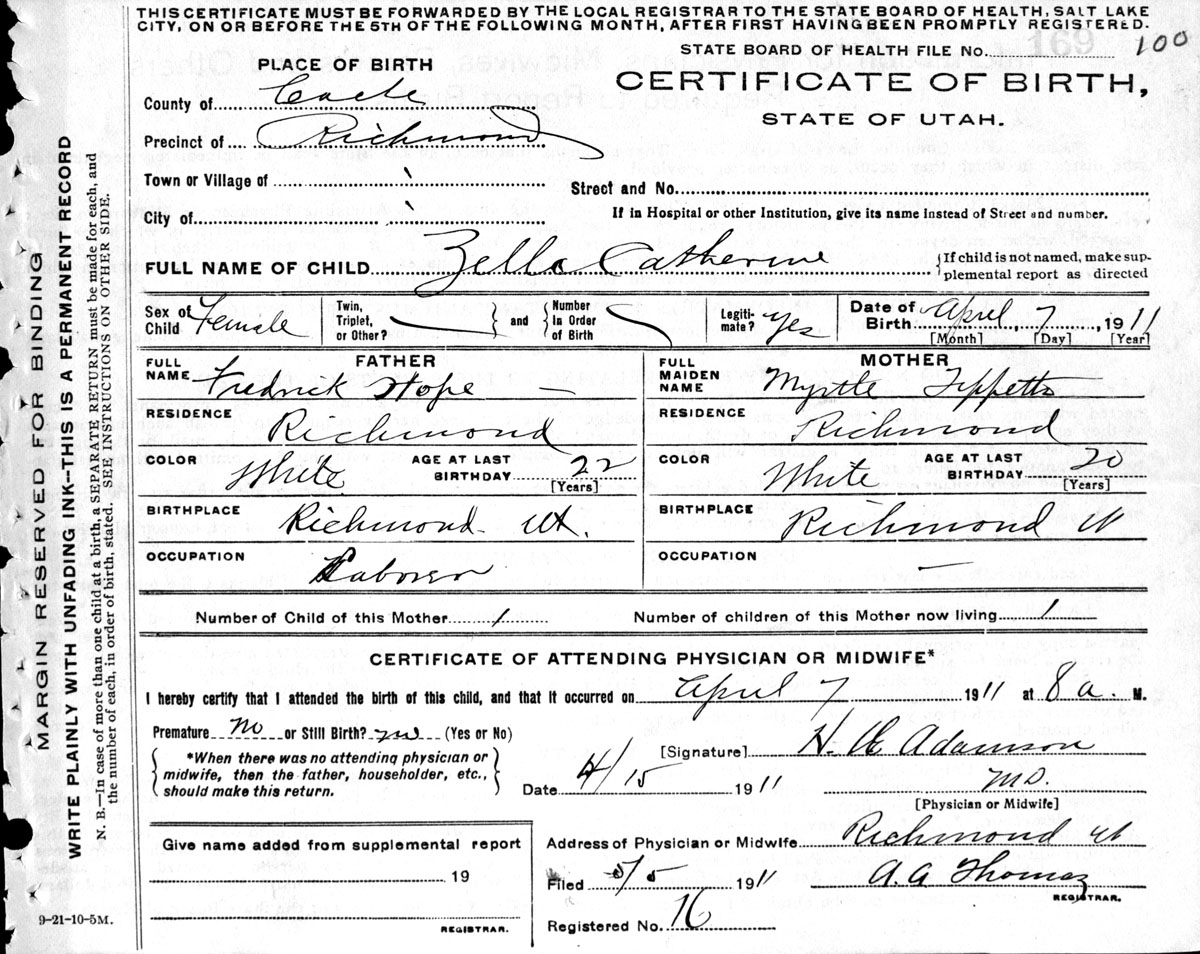 THIS CERTIFICATE MUST BE FORWARDED BY THE LOCAL REGISTRAR TO THE STATE BOARD OF HEALTH, SALT LAKE
CITY, ON OR BEFORE THE 5TH OF THE FOLLOWING MONTH, AFTER FIRST HAVING BEEN PROMPTLY REGISTERED.
STATE BOARD OF HEALTH FILE No. 169 100
PLACE OF BIRTH
CERTIFICATE OF BIRTH,
STATE OF UTAH.
County of Cache
Precinct of Richmond
Town or Village of
Street and No.
City of
If in Hospital or other Institution, give its name instead of Street and number.
FULL NAME OF CHILD Zella Catherine {If child is not named, make sup-
plemental report as directed
Sex of Child Female Twin, Triplet, or Other? } and { Number in Order of Birth Legiti-mate? Yes Date of Birth April, 7, 1911
[Month] [Day] [Year]
FATHER MOTHER
FULL NAME Fredrick Hope FULL MAIDEN NAME Myrtle Tippetts
RESIDENCE Richmond RESIDENCE Richmond
COLOR White AGE AT LAST BIRTHDAY 22 [Years] COLOR White AGE AT LAST BIRTHDAY 20 [Years]
BIRTHPLACE Richmond Ut. BIRTHPLACE Richmond Ut
OCCUPATION Laborer OCCUPATION —
Number of Child of this Mother 1 Number of children of this Mother now living 1
CERTIFICATE OF ATTENDING PHYSICIAN OR MIDWIFE*
I hereby certify that I attended the birth of this child, and that it occurred on April 7 1911 at 8 a. M.
Premature No or Still Birth? no (Yes or No)
*When there was no attending physician or
midwife, then the father, householder, etc.,
should make this return.
[Signature] Adamson
Date 4/15 1911 M.D.
[Physician or Midwife]
Give name added from supplemental report
19
REGISTRAR.
Address of Physician or Midwife Richmond Ut
Filed 5/5 1911 A. A Thomas
REGISTRAR.
Registered No. 16
9-21-10-5M.
MARGIN RESERVED FOR BINDING
WRITE PLAINLY WITH UNFADING INK--THIS IS A PERMANENT RECORD
N. B.—In case of more than one child at a birth, a SEPARATE RETURN must be made for each, and
the number of each, in order of birth, stated. SEE INSTRUCTIONS ON OTHER SIDE.